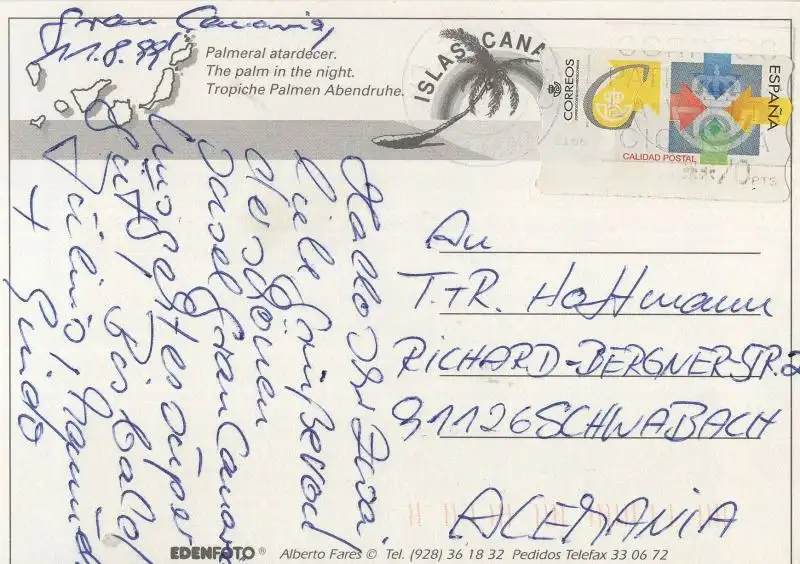 Gran Canaria,
11.8.99
Palmeral atardecer.
The palm in the night.
Tropiche Palmen Abendruhe.
ISLAS CANA
CORREOS
ESPAÑA
CALIDAD POSTAL
70 PTS
Hallo Ihr Zwei,
viele Grüße von
der schönen
Insel Gran Canaria
uns geht es super
gut, Bis bald
+
Guido
An
T.+R. Hoffmann
RICHARD-BERGNER-STR. 2
91126 SCHWABACH
ALEMANIA
EDENFOTO® Alberto Fares © Tel. (928) 36 18 32 Pedidos Telefax 33 06 72